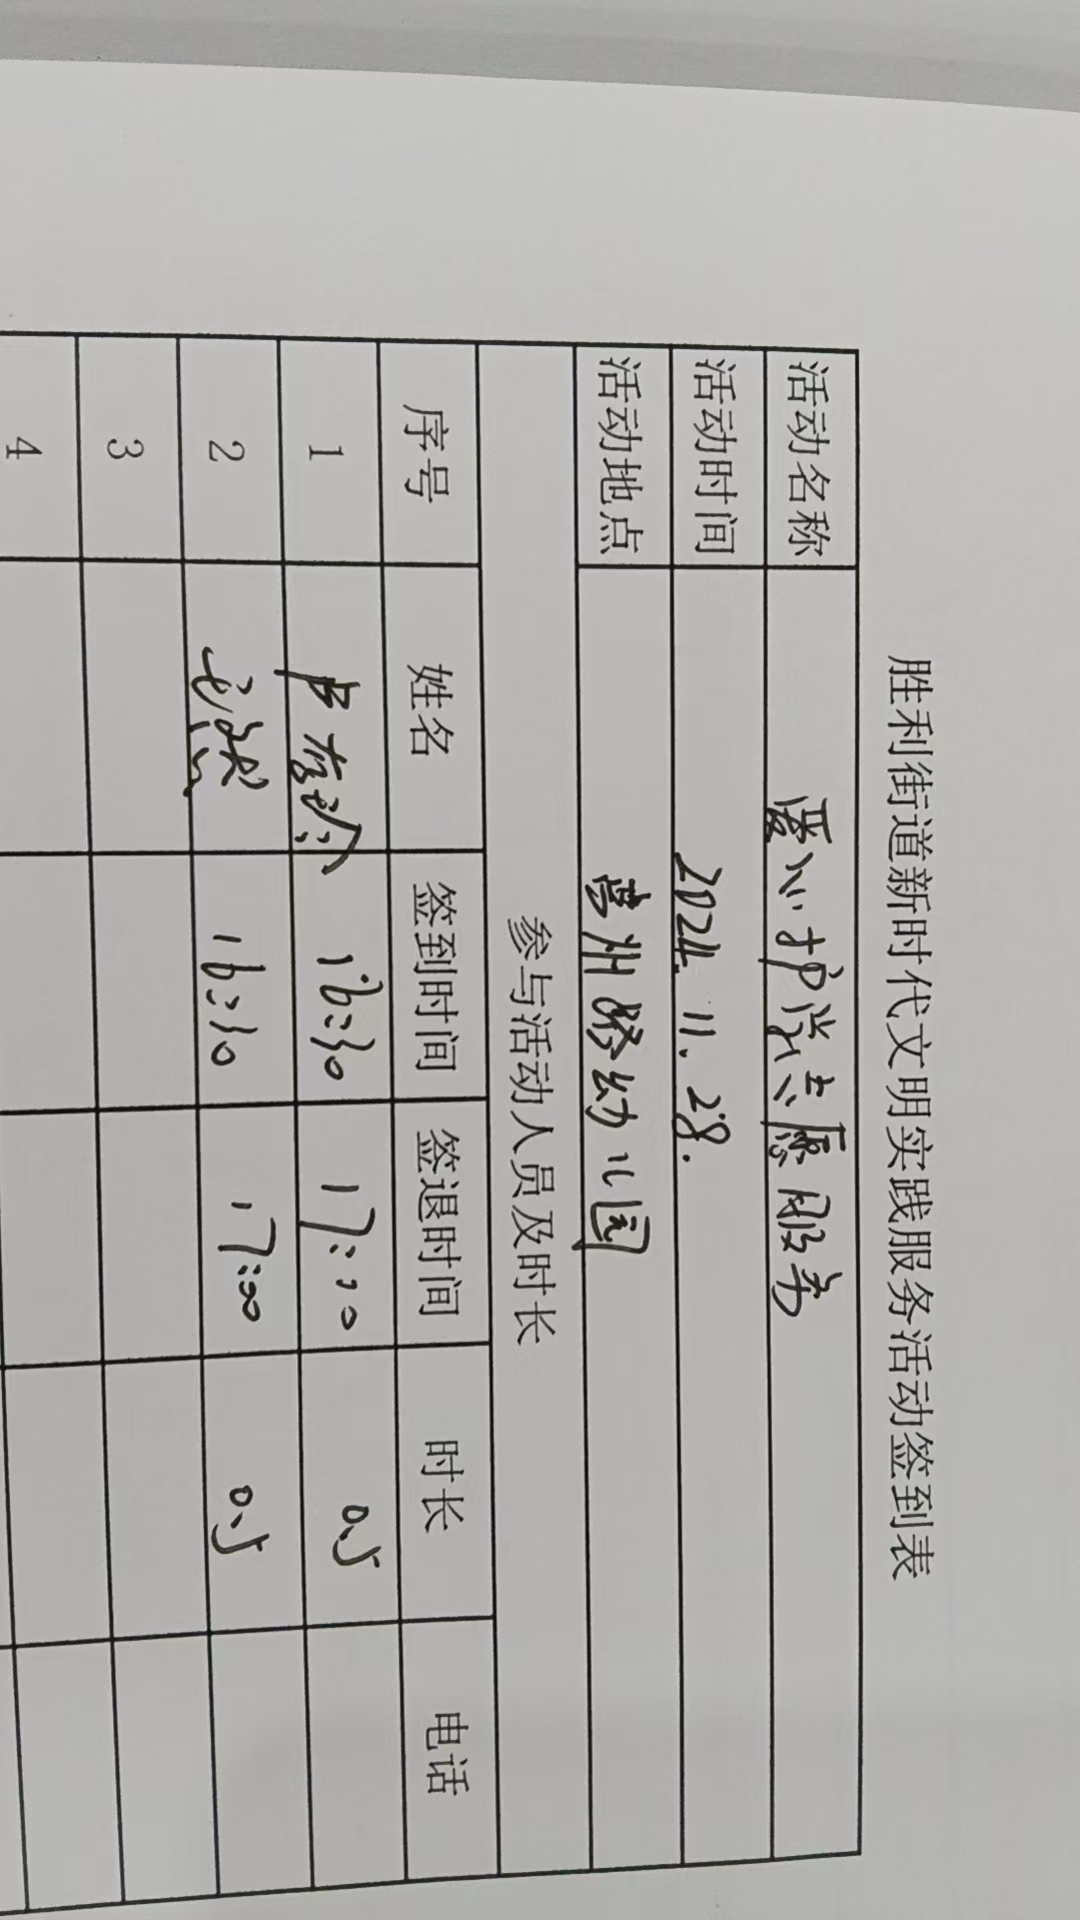 胜利街道新时代文明实践服务活动签到表
活动名称 爱心护学志愿服务
活动时间 2024.11.28.
活动地点 营州路幼儿园
参与活动人员及时长
序号 姓名 签到时间 签退时间 时长 电话
1 16:30 17:00 0.5
2 16:30 17:00 0.5
3
4